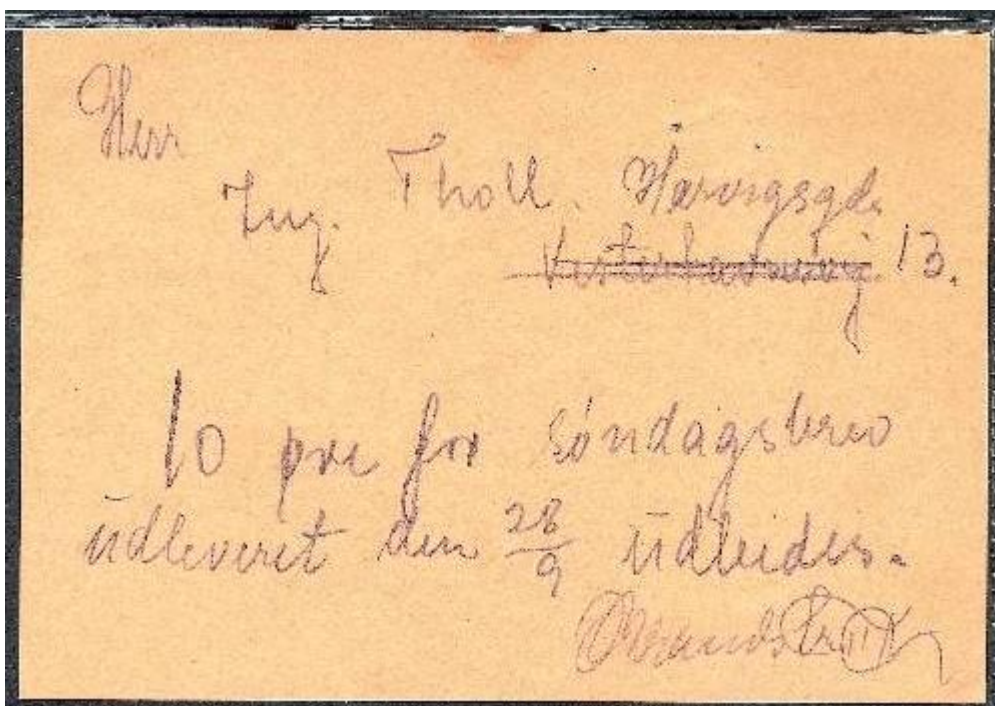 Herr
Ing. Tholl. Harvigsgd.
13.
10 øre for søndagsbrev
udleveret den 28/9 udbeides.